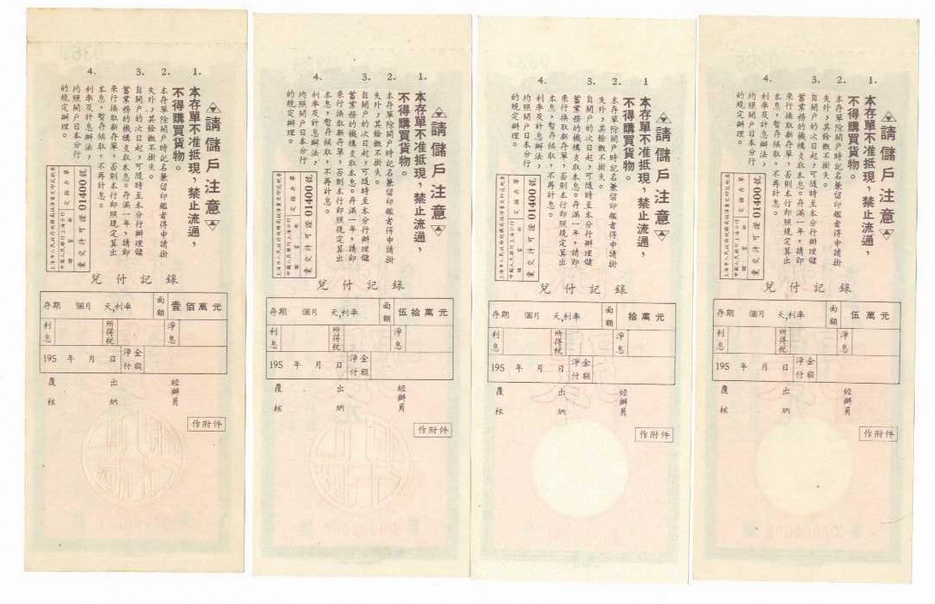 請儲戶注意
1. 本存單不准抵現，禁止流通，
不得購買貨物。
2. 本存單除開戶時記名兼留印鑑者得申請掛
失外，其餘概不掛失。
3. 自開戶的次日起，可隨時至本分行辦理儲
蓄業務的機構支取本息。存滿一年，請即
來行換取新存單，否則本行即照規定算出
本息，暫存候取，不再計息。
4. 利率及計息辦法，
均照開戶日本分行
的規定辦理。
中國人民銀行上海分行
彙交許可證 01400號
兌付記錄
存期 個月 天,利率 面額 壹佰萬元
利息 所得稅 淨息
195 年 月 日 淨付金額
覆核 出納 經辦員
作附件
請儲戶注意
1. 本存單不准抵現，禁止流通，
不得購買貨物。
2. 本存單除開戶時記名兼留印鑑者得申請掛
失外，其餘概不掛失。
3. 自開戶的次日起，可隨時至本分行辦理儲
蓄業務的機構支取本息。存滿一年，請即
來行換取新存單，否則本行即照規定算出
本息，暫存候取，不再計息。
4. 利率及計息辦法，
均照開戶日本分行
的規定辦理。
中國人民銀行上海分行
彙交許可證 01400號
兌付記錄
存期 個月 天,利率 面額 伍拾萬元
利息 所得稅 淨息
195 年 月 日 淨付金額
覆核 出納 經辦員
作附件
請儲戶注意
1 本存單不准抵現，禁止流通，
不得購買貨物。
2. 本存單除開戶時記名兼留印鑑者得申請掛
失外，其餘概不掛失。
3. 自開戶的次日起，可隨時至本分行辦理儲
蓄業務的機構支取本息。存滿一年，請即
來行換取新存單，否則本行即照規定算出
本息，暫存候取，不再計息。
4. 利率及計息辦法，
均照開戶日本分行
的規定辦理。
中國人民銀行上海分行
彙交許可證 01400號
兌付記錄
存期 個月 天,利率 面額 拾萬元
利息 所得稅 淨息
195 年 月 日 淨付金額
覆核 出納 經辦員
作附件
請儲戶注意
1. 本存單不准抵現，禁止流通，
不得購買貨物。
2. 本存單除開戶時記名兼留印鑑者得申請掛
失外，其餘概不掛失。
3. 自開戶的次日起，可隨時至本分行辦理儲
蓄業務的機構支取本息。存滿一年，請即
來行換取新存單，否則本行即照規定算出
本息，暫存候取，不再計息。
4. 利率及計息辦法，
均照開戶日本分行
的規定辦理。
中國人民銀行上海分行
彙交許可證 01400號
兌付記錄
存期 個月 天,利率 面額 伍萬元
利息 所得稅 淨息
195 年 月 日 淨付金額
覆核 出納 經辦員
作附件